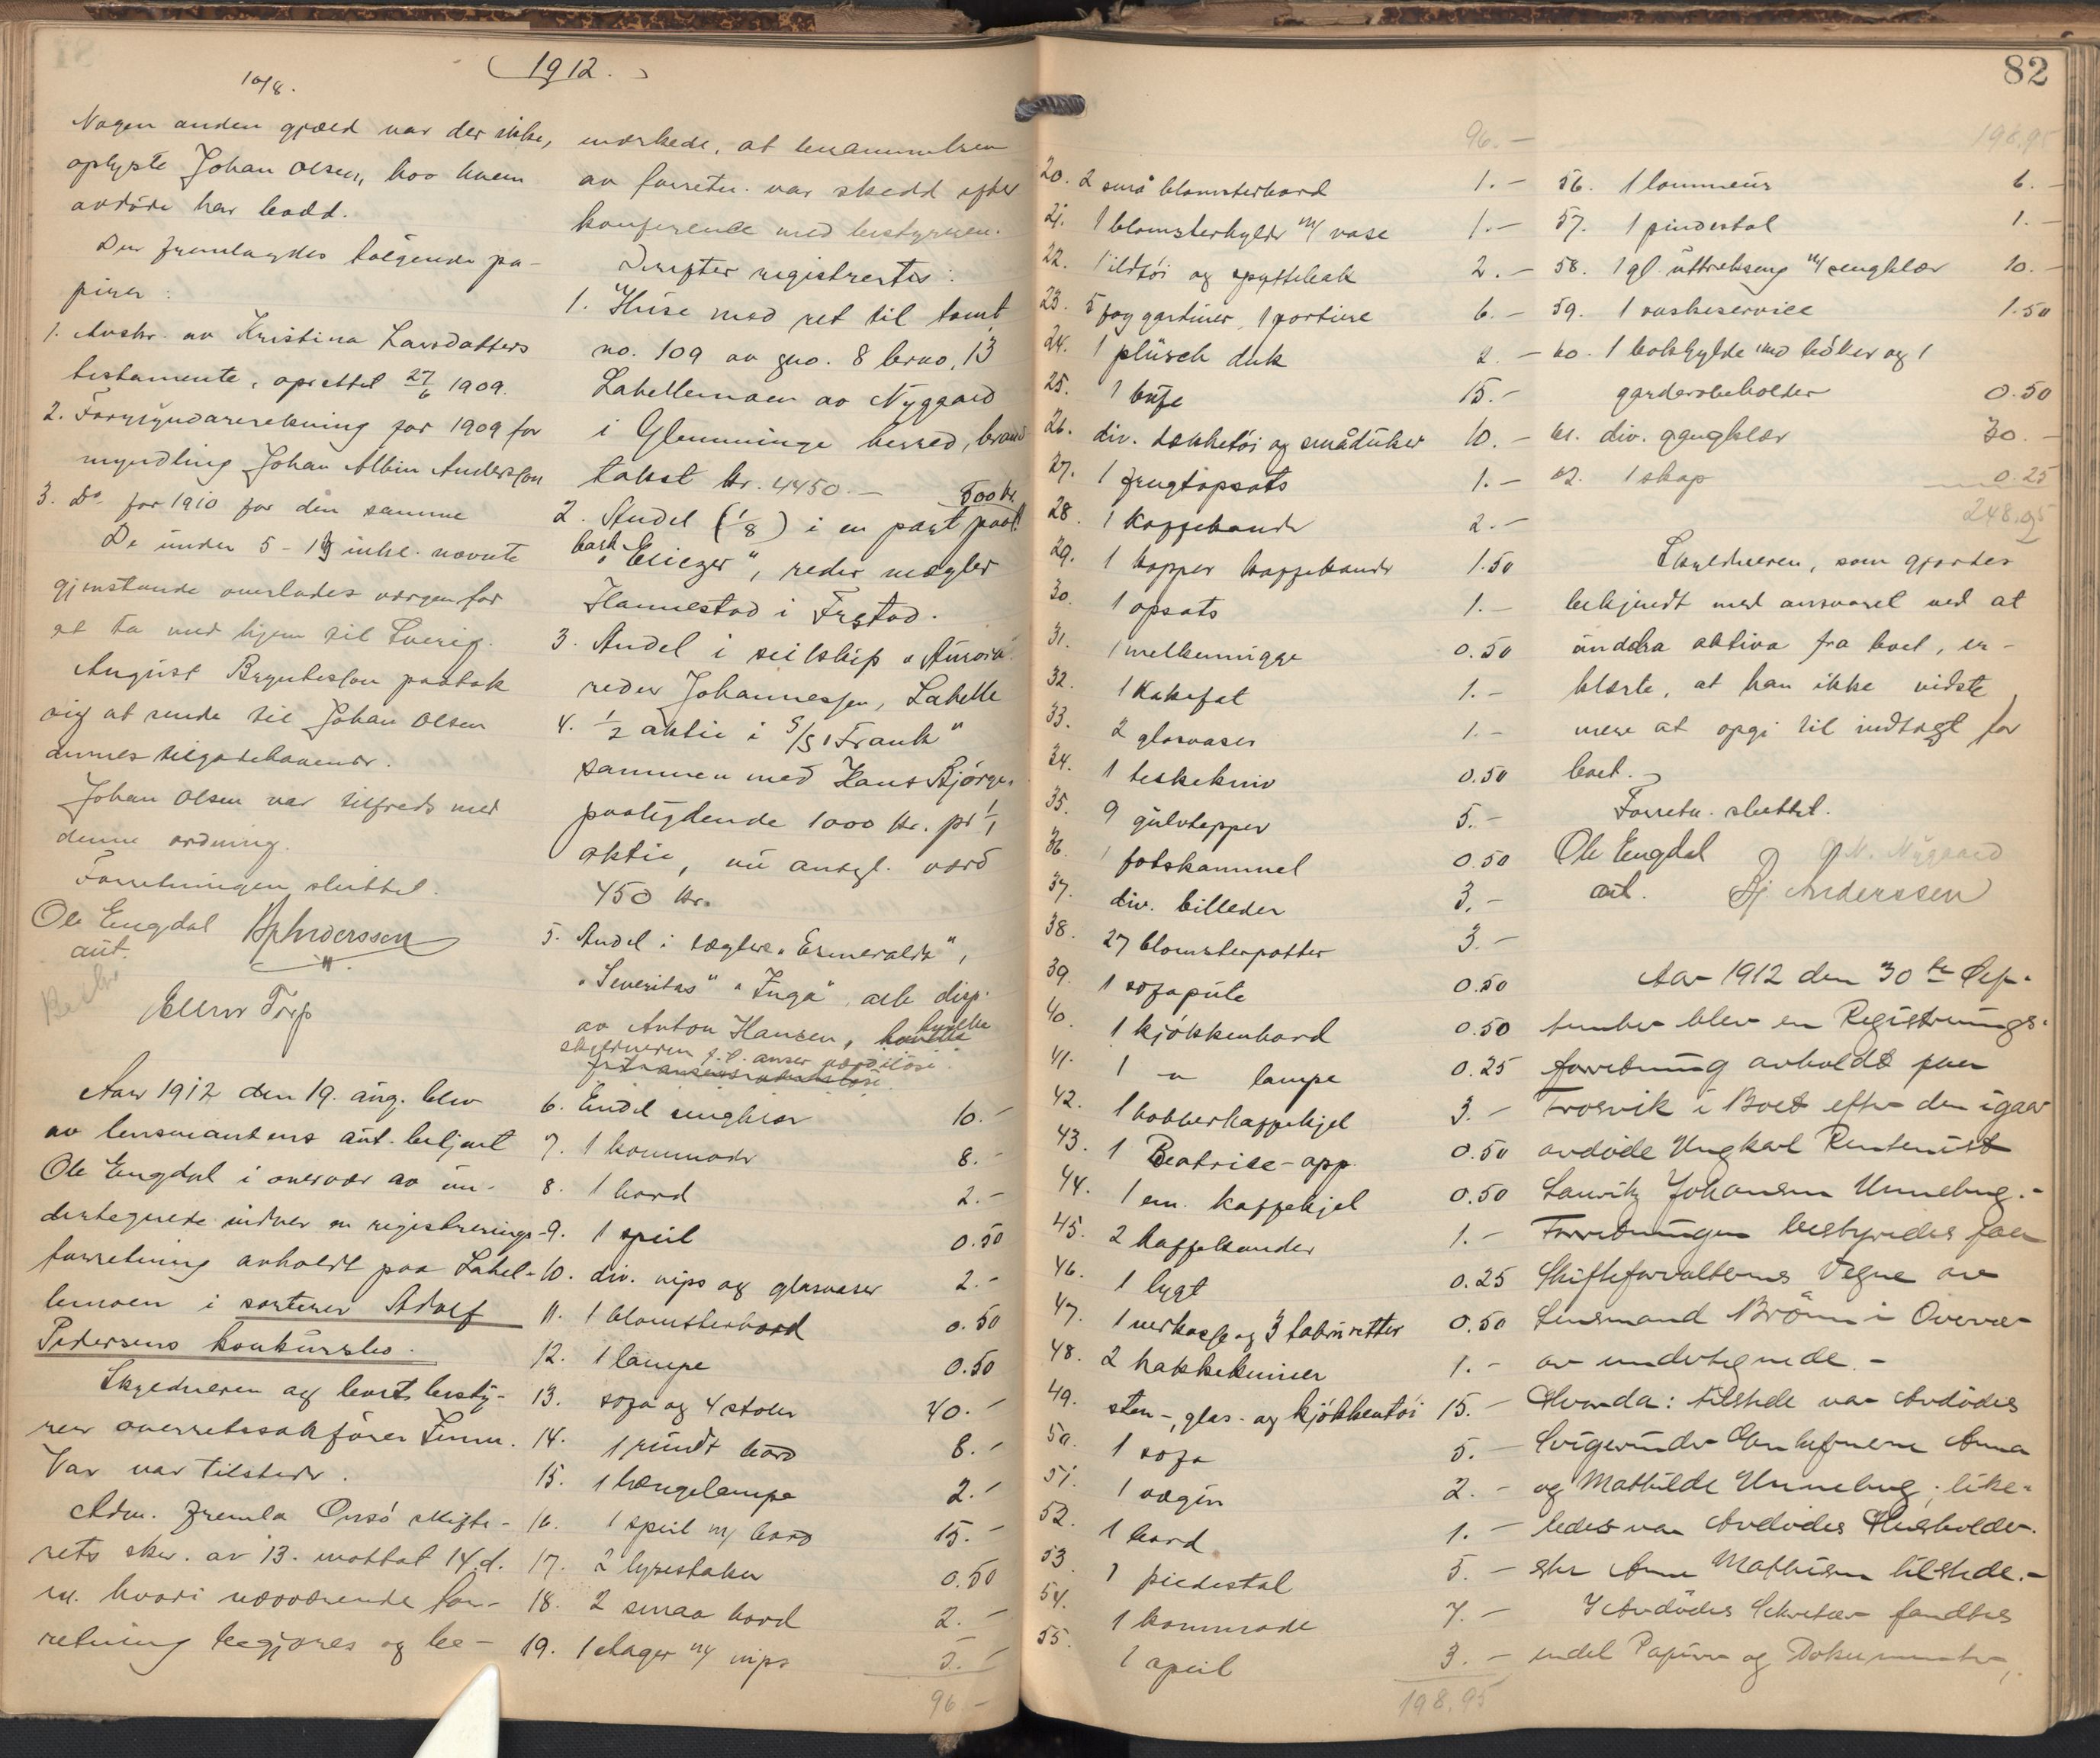 1912.
10/8.
Nogen anden gjæld var der ikke,
oplyste Johan Olsen, hos hvem
avdøde har bodd.
Der fremlagdes følgende pa-
pirer:
1. Avskr. av Kristina Larsdatters
testamente, oprettet 27/6 1909.
2. Formynderrekning for 1909 for
myndling Johan Albin Andersson
3. Do for 1910 for den samme
De under 5-19 inkl. nævnte
gjenstande overlodes vergen for
at ta med hjem til Sverig.
August Bryntesson paatok
sig at sende til Johan Olsen
dennes tilgodehavende.
Johan Olsen var tilfreds med
denne ordning.
Forretningen sluttet.
Ole Engdal
aut.
Bj. Anderssen
Ellen Torp
Aar 1912 den 19. aug. blev
av lensmandens aut. betjent
Ole Engdal i overvær av un-
dertegnede vidner en registrerings-
forretning avholdt paa Label-
lemoen i sorterer Adolf
Pedersens konkursbo.
Skyldneren og boets besty-
rer overretssakfører Finn.
Var var tilstede.
Adm. fremla Onsø skifte-
rets skr. av 13. mottat 14. d.
m. hvori nærværende for-
retning begjæres og be-
mærkede, at berammelsen
av forretn. var skedd efter
konferense med bestyreren.
Derefter registrertes:
1. Huse med ret til tomt
no. 109 av gno. 8 brno. 13
Labellemoen av Nygaard
i Glemminge herred, brand-
takst kr. 4450.- 500 kr.
2. Andel (1/8) i en part
bark "Eliezer", reder mægler
Hannestad i Frstad.
3. Andel i seilskip "Aurora"
reder Johannessen, Labelle
4. 1/2 aktie i S/S "Frank"
sammen med Hans Bjørge.
paalydende 1000 kr. pr 1/1
aktie, nu antgl. værd
450 kr.
5. Andel i lægtere "Esmeralda",
"Severitas" "Inga" alle disp.
av Anton Hansen, hvilke
skyldneren f. t. anser værdiløse.
6. Endel sengklær 10.-
7. 1 kommode 8.-
8. 1 bord 2.-
9. 1 speil 0.50
10. div. nips og glasvaser 2.-
11. 1 blomsterbord 0.50
12. 1 lampe 0.50
13. sofa og 4 stoler 40.-
14. 1 rundt bord 8.-
15. 1 hængelampe 2.-
16. 1 speil m/ bord 15.-
17. 2 lysestaker 0.50
18. 2 smaa bord 2.-
19. 1 etager m/ nips 5.-
96 -
82
96.-
20. 2 små blomsterbord 1.-
21. 1 blomsterhylde m/ vase 1.-
22. 1 ildtøi og spyttebak 2.-
23. 5 fag gardiner, 1 portiere 6.-
24. 1 plüsch duk 2.-
25. 1 bufe 15.-
26. div. dækketøi og småduker 10.-
27. 1 frugtopsats 1.-
28. 1 kaffekande 2.-
29. 1 kopper kaffekande 1.50
30. 1 opsats 1.-
31. 1 melkemugge 0.50
32. 1 kakefat 1.-
33. 2 glasvaser 1.-
34. 1 teskekniv 0.50
35. 9 gulvtepper 5.-
36. 1 fotskammel 0.50
37. div. billeder 3.-
38. 27 blomsterpotter 3.-
39. 1 sofapute 0.50
40. 1 kjøkkenbord 0.50
41. 1 " lampe 0.25
42. 1 kobberkaffekjel 3.-
43. 1 Beatrice-app. 0.50
44. 1 em. kaffekjel 0.50
45. 2 kaffekander 1.-
46. 1 lygt 0.25
47. 1 verkasse og 3 taburetter 0.50
48. 2 hakkekniver 1.-
49. sten-, glas- og kjøkkentøi 15.-
50. 1 sofa 5.-
51. 1 vogn 2.-
52. 1 bord 1.-
53. 1 piedestal 5.-
54. 1 kommode 7.-
55. 1 speil 3.-
198.95
198.95
56. 1 lommeur 6.-
57. 1 pindestol 1.-
58. 1 gl. uttrekseng m/ sengklær 10.-
59. 1 vaskeservice 1.50
60. 1 bokhylde med bøker og 1
garderobeholder 0.50
61. div. gangklær 30.-
62. 1 skap 0.25
248.95
Skyldneren, som gjordes
bekjendt med ansvaret ved at
unddra aktiva fra boet, er-
klærte, at han ikke vidste
mere at opgi til indtægt for
boet.
Forretn. sluttet.
Ole Engdal
aut.
N. Nygaard
Bj. Anderssen
Aar 1912 den 30te Sep-
tember blev en Registrerings-
forretning avholdt paa
Trosvik i Boet efter den igaar
avdøde Ungkarl Rentenist
Lauritz Johansen Unneberg.-
Forretningen bestyredes paa
Skifteforvalterens Vegne av
Lensmand Brønn i Overvær
av undertegnede.-
Hvorda: tilstede var Avdødes
Svigerinder Enkefruerne Anna
og Mathilde Unneberg; like-
ledes var Avdødes Husholder-
ske Anne Mathisen tilstede.-
I Avdødes Sekretær fandtes
endel Papirer og Dokumenter,